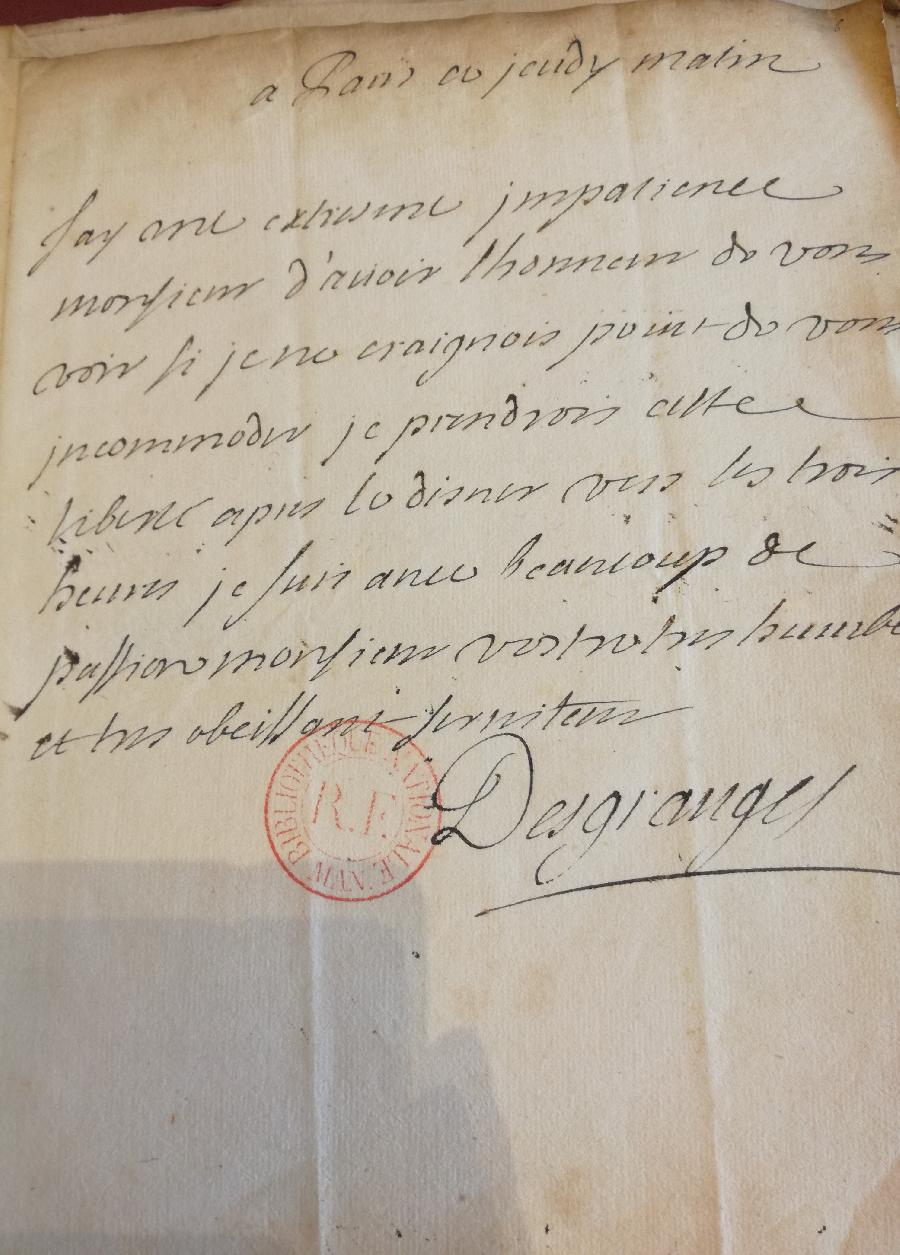 a Paris ce jeudy matin
jay une extresme jmpatience
monsieur d'auoir lhonneur de vous
voir si je ne craignois point de vous
jncommoder je prendrois cette
liberté apres le disner vers les trois
heures je suis auec beaucoup de
passion monsieur vostre tres humble
et tres obeissant seruiteur
Desgranges
BIBLIOTHEQUE NATIONALE
R.F.